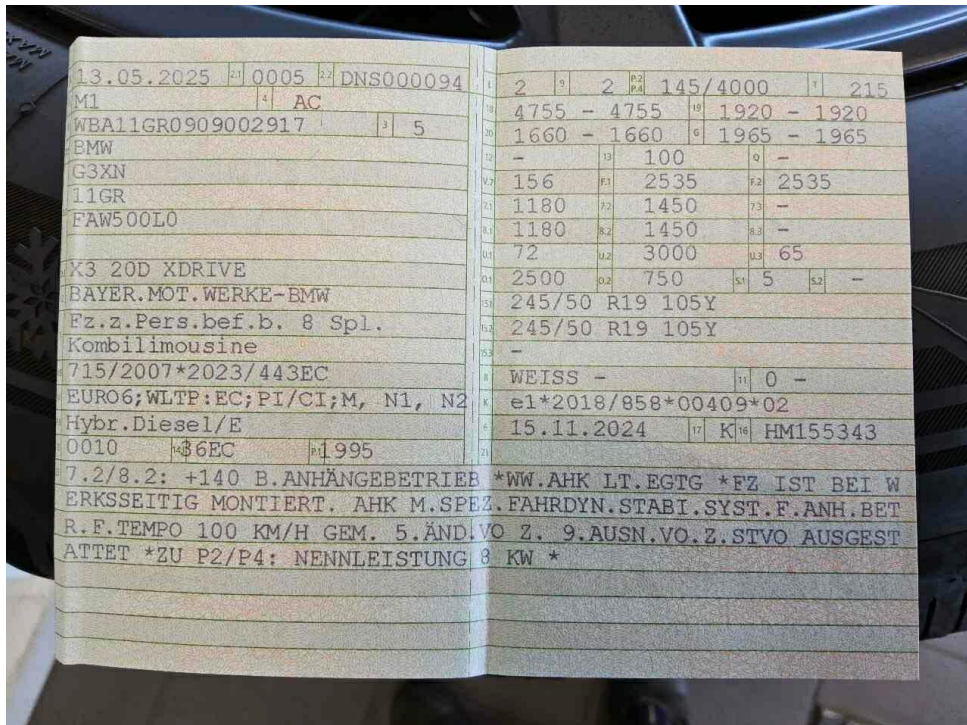 13.05.2025 2.1 0005 2.2 DNS000094
M1 4 AC
WBA11GR0909002917 3 5
BMW
G3XN
11GR
FAW500L0
X3 20D XDRIVE
BAYER.MOT.WERKE-BMW
Fz.z.Pers.bef.b. 8 Spl.
Kombilimousine
715/2007*2023/443EC
EURO6;WLTP:EC;PI/CI;M, N1, N2
Hybr.Diesel/E
0010 14.1 36EC P.1 1995
L 2 9 2 P.2 P.4 145/4000 T 215
18 4755 - 4755 19 1920 - 1920
20 1660 - 1660 G 1965 - 1965
12 - 13 100 Q -
V.7 156 F.1 2535 F.2 2535
7.1 1180 7.2 1450 7.3 -
8.1 1180 8.2 1450 8.3 -
U.1 72 U.2 3000 U.3 65
O.1 2500 O.2 750 S.1 5 S.2 -
15.1 245/50 R19 105Y
15.2 245/50 R19 105Y
15.3 -
R WEISS - 11 0 -
K e1*2018/858*00409*02
6 15.11.2024 17 K 16 HM155343
21
7.2/8.2: +140 B.ANHÄNGEBETRIEB *WW.AHK LT.EGTG *FZ IST BEI W
ERKSSEITIG MONTIERT. AHK M.SPEZ.FAHRDYN.STABI.SYST.F.ANH.BET
R.F.TEMPO 100 KM/H GEM. 5.ÄND.VO Z. 9.AUSN.VO.Z.STVO AUSGEST
ATTET *ZU P2/P4: NENNLEISTUNG 8 KW *